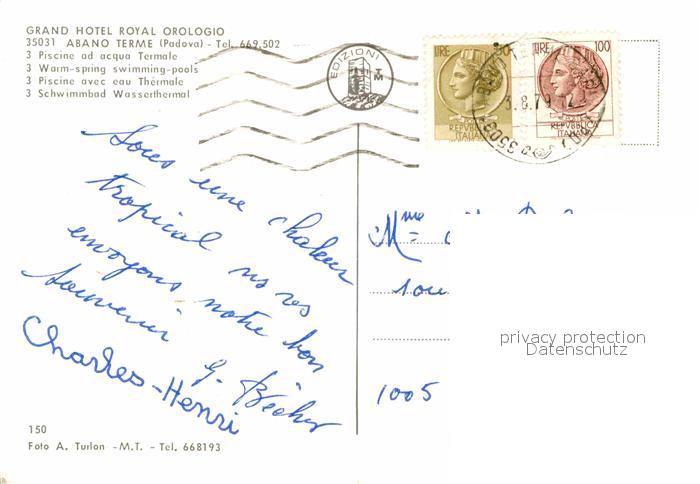 GRAND HOTEL ROYAL OROLOGIO
35031 ABANO TERME (Padova) - Tel. 669.502
3 Piscine ad acqua Termale
3 Warm-spring swimming-pools
3 Piscine avec eau Thérmale
3 Schwimmbad Wasserthermal
EDIZIONI
LIRE 50
REPVBBLICA
ITALIANA
LIRE 100
REPVBBLICA
ITALIANA
3.8.79
Sous une chaleur
tropical ns vs
envoyons notre bon
souvenir
Charles-Henri
Mme
1005
privacy protection
Datenschutz
150
Foto A. Turlon - M.T. - Tel. 668193